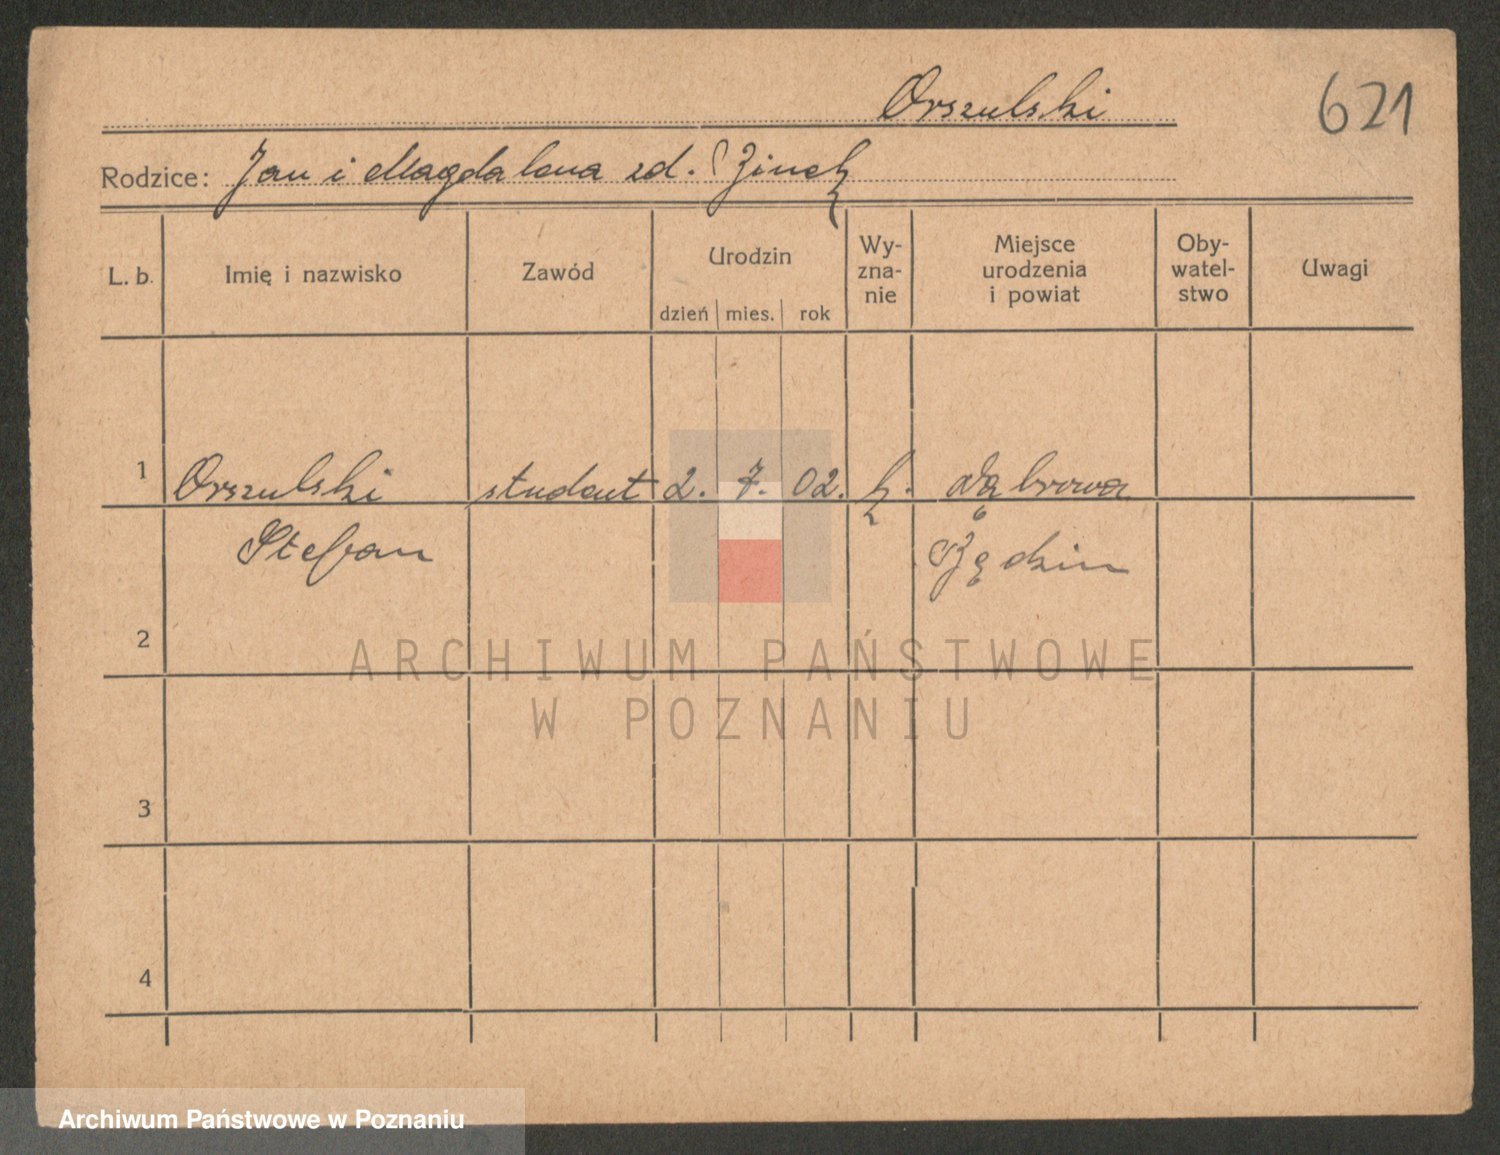 Orszulski
621
Rodzice: Jan i Magdalena zd.
L. b. Imię i nazwisko Zawód Urodzin dzień mies. rok Wy-zna-nie Miejsce urodzenia i powiat Oby-watel-stwo Uwagi
1 Orszulski student 2. 7. 02. Dąbrowa
Stefan Będzin
2
ARCHIWUM PAŃSTWOWE
W POZNANIU
3
4
Archiwum Państwowe w Poznaniu